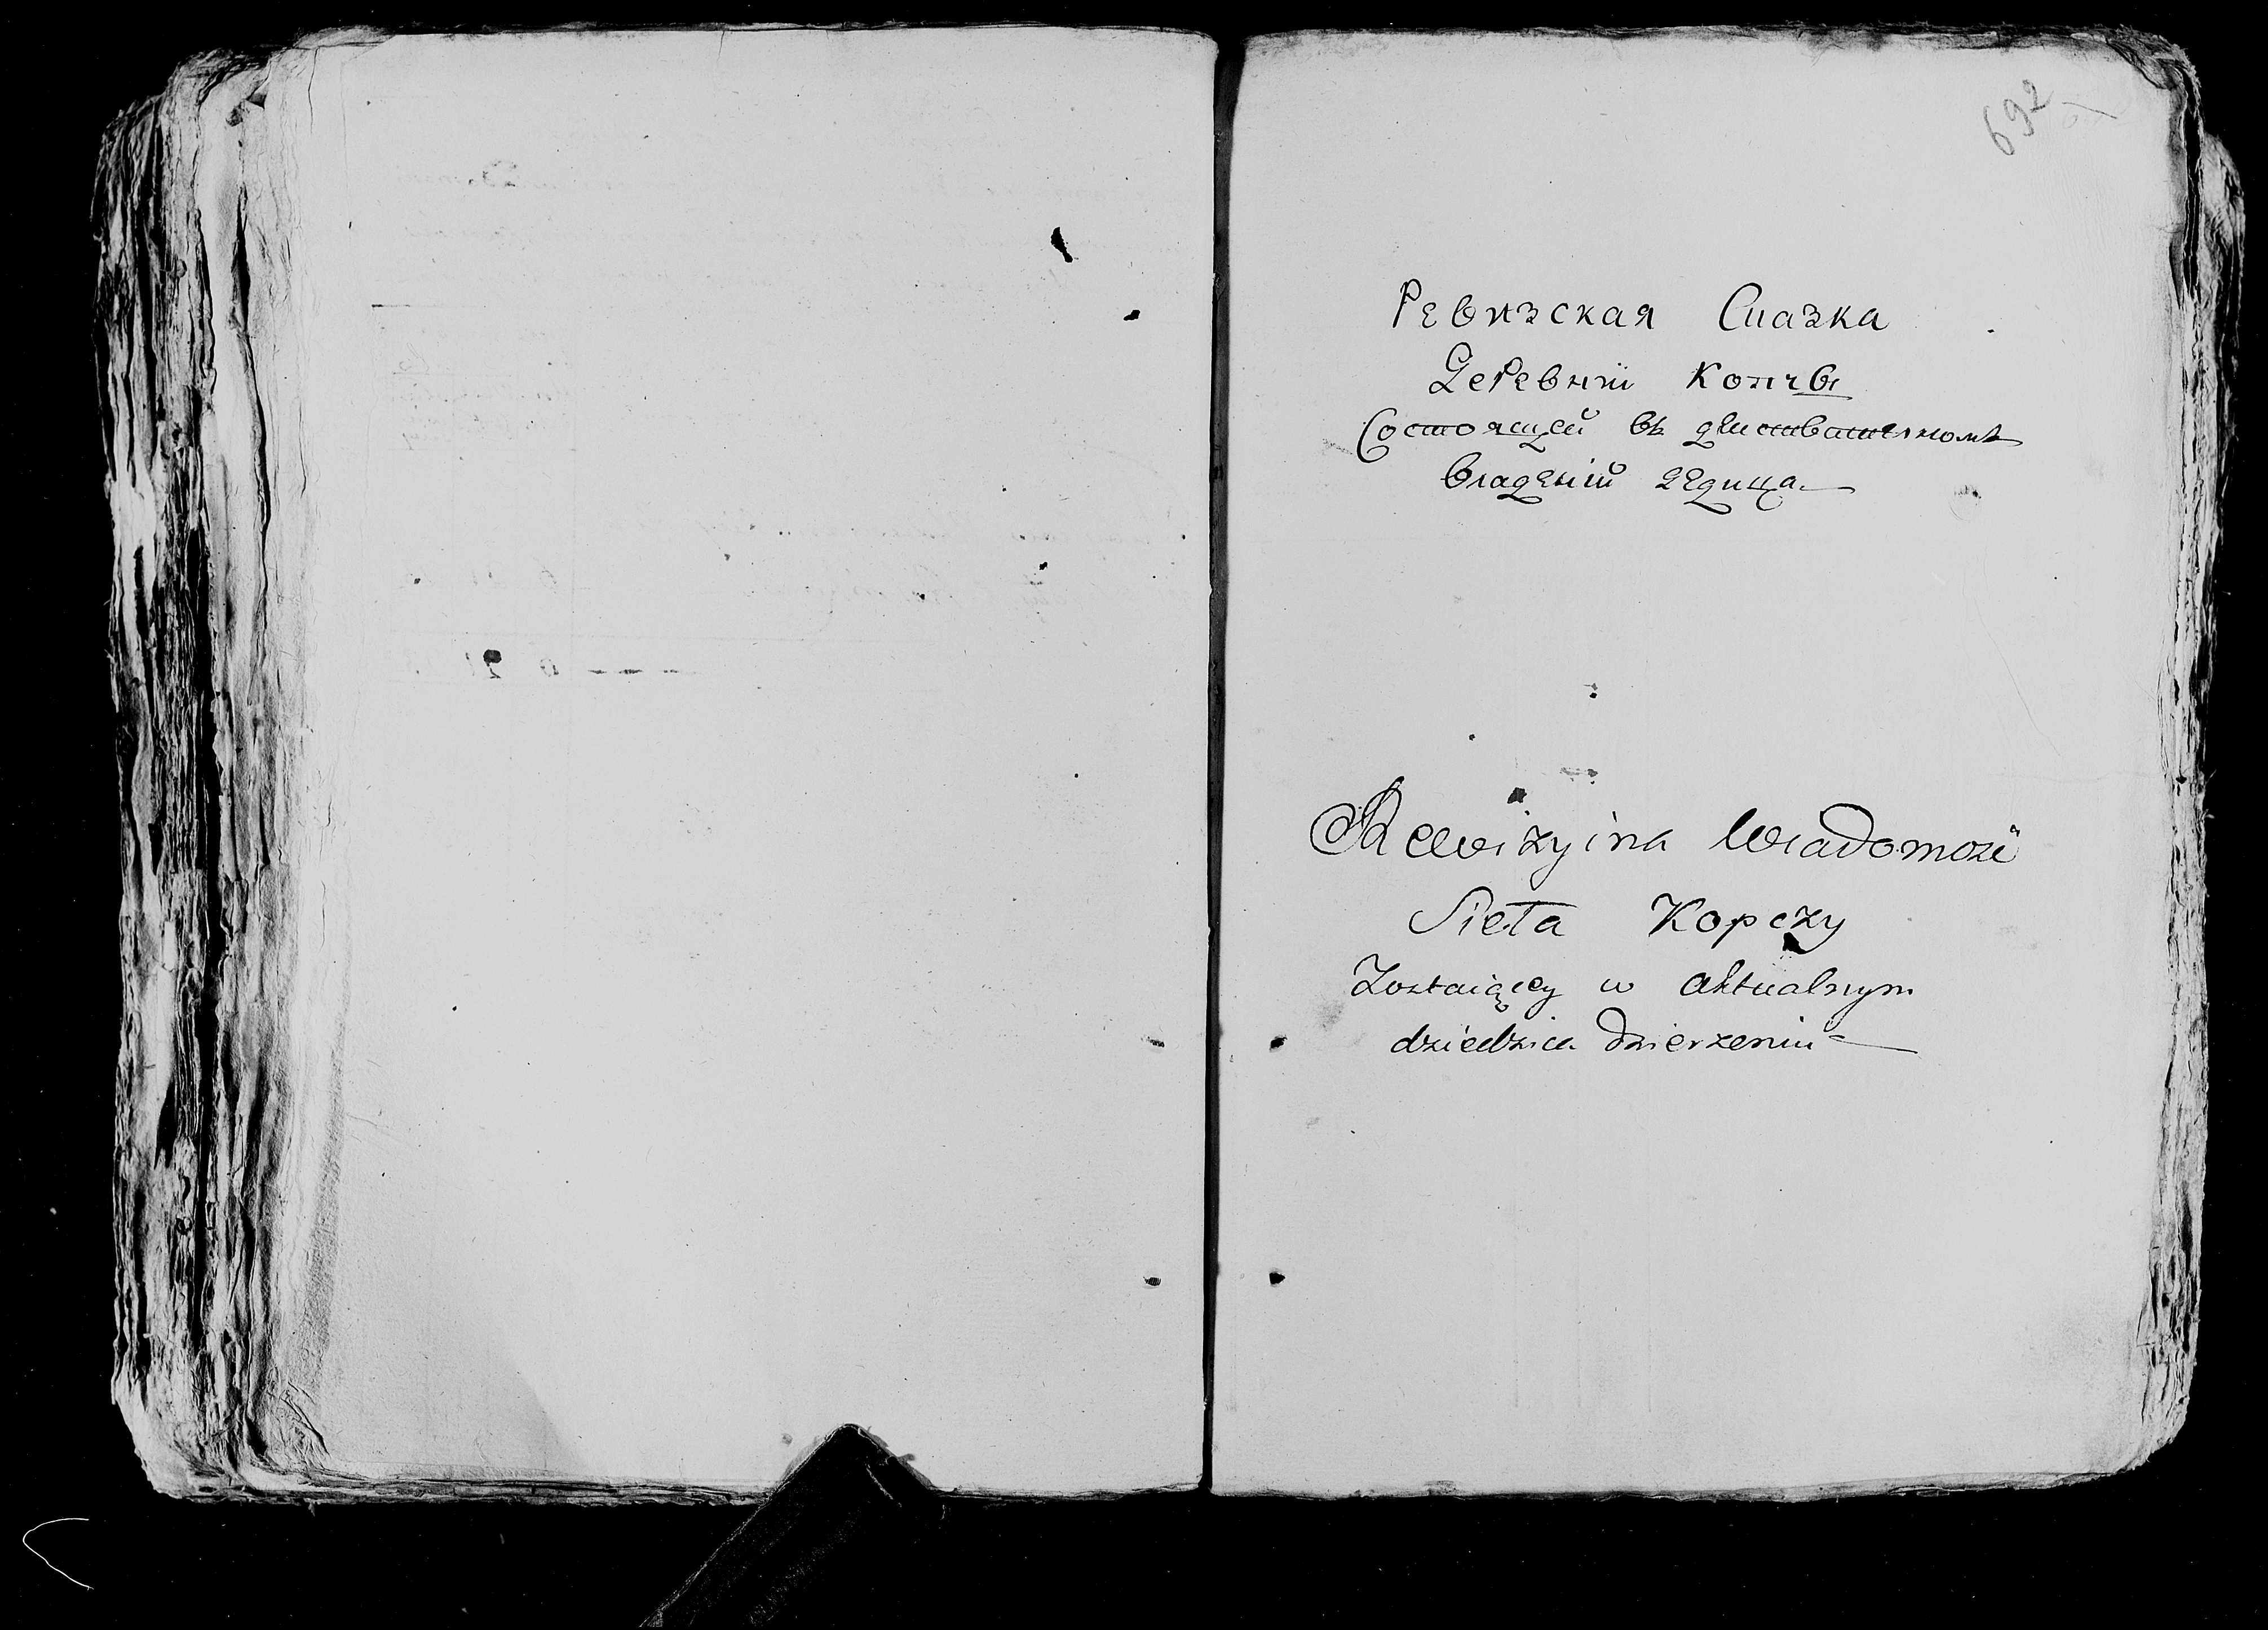 692
Ревизская Сказка
Деревнїи Копчы
Состоящей въ дѣиствителномъ
владенїй дедица.
Rewizyina Wiadomość
Sieła Kopczy
Zostaiącey w aktualnym
dziedzica dzierzeniu